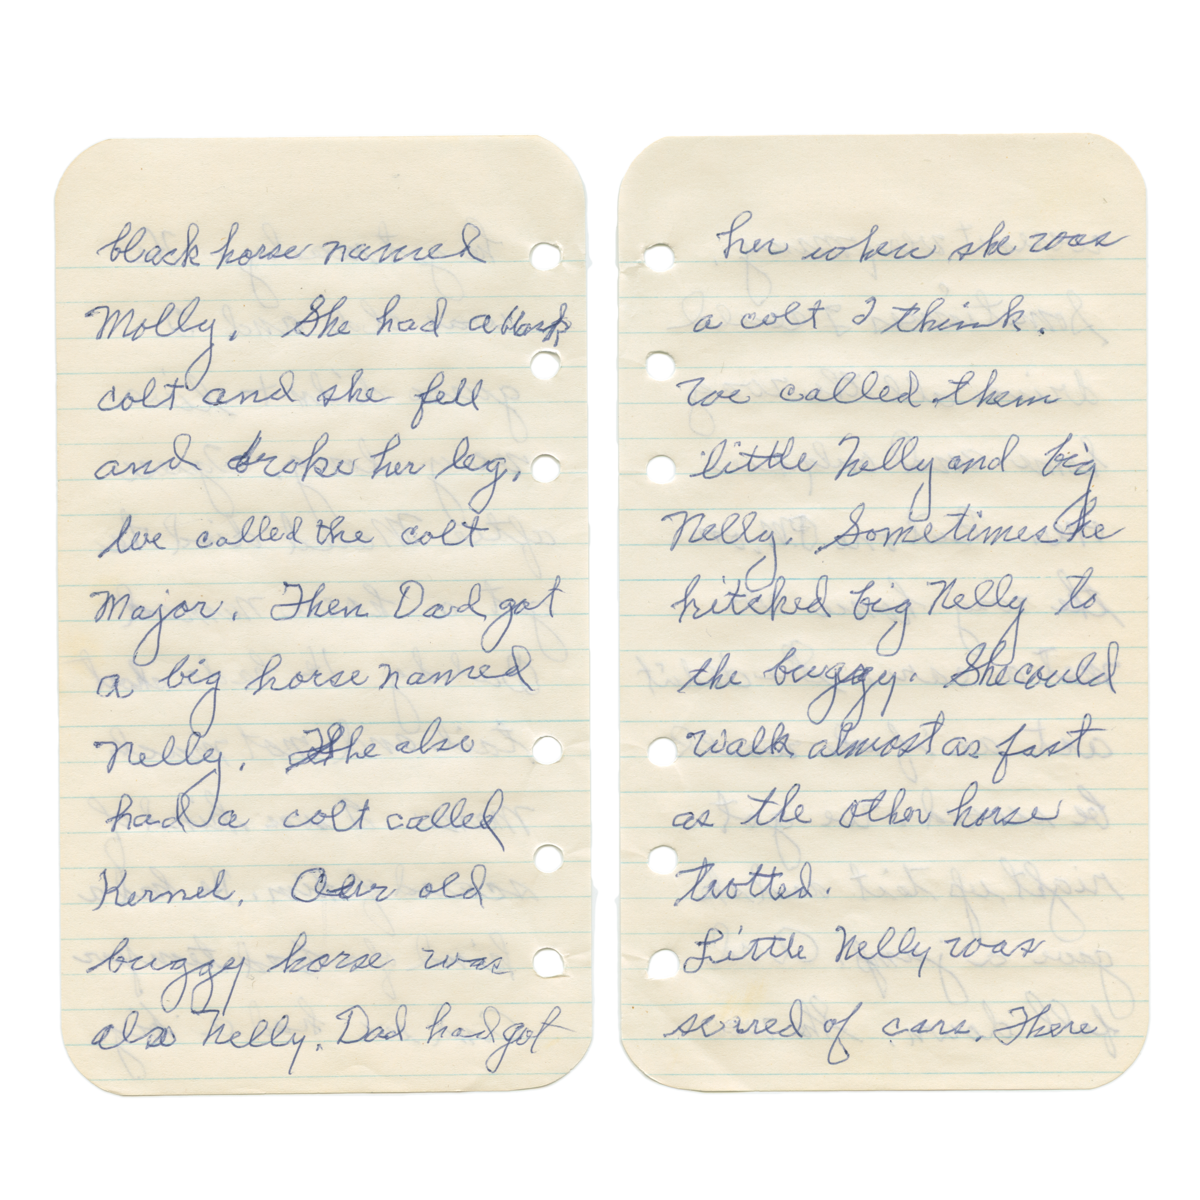 black horse named
Molly. She had a black
colt and she fell
and broke her leg,
We called the colt
Major. Then Dad got
a big horse named
Nelly. She also
had a colt called
Kernel. Our old
buggy horse was
also Nelly. Dad had got
her when she was
a colt I think.
We called them
little Nelly and big
Nelly. Sometimes he
hitched big Nelly to
the buggy. She could
walk almost as fast
as the other horse
trotted.
Little Nelly was
scared of cars. There